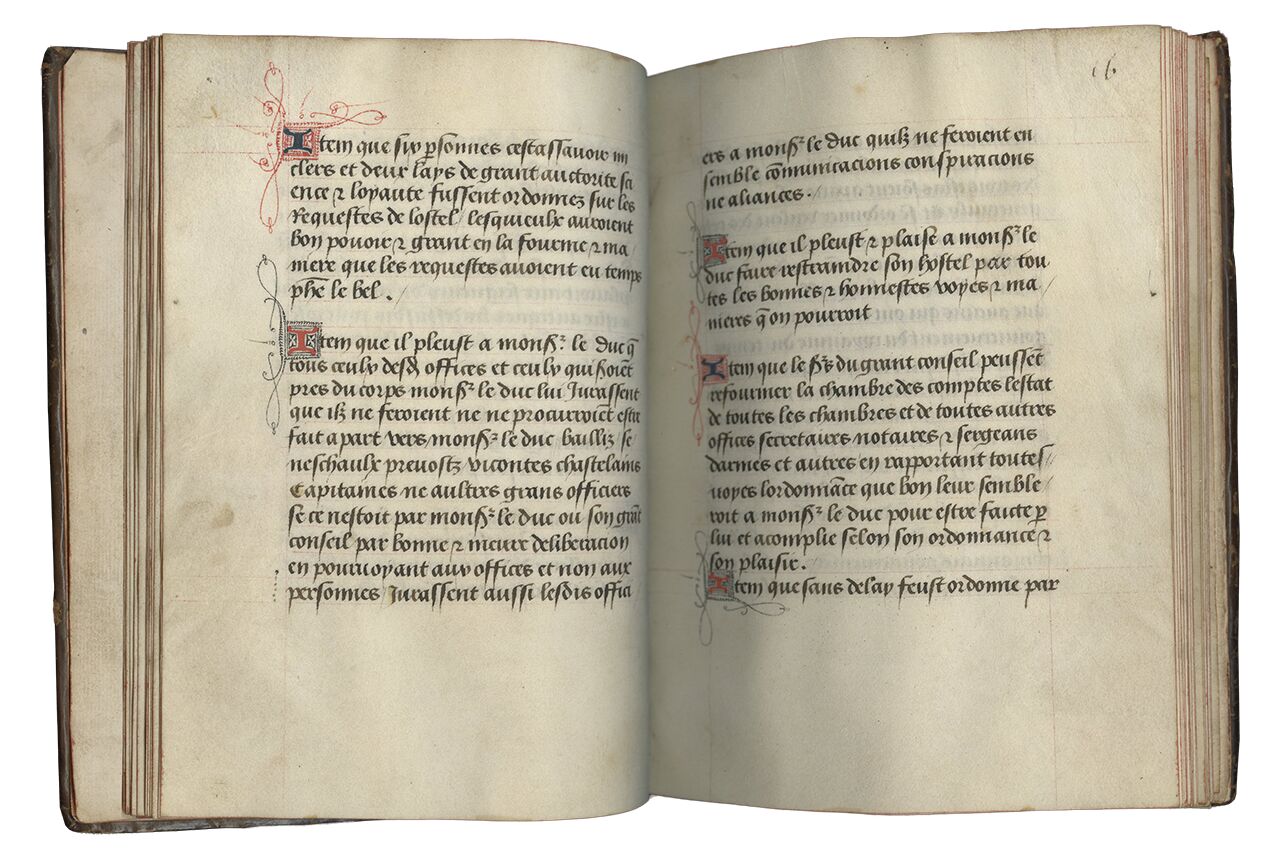 Item que six psonnes cestassavoir iiii
clers et deux lays de grant auctorite sci
ence ⁊ loyaute fussent ordonnez sur les
Requestes de lostel / lesquieulx auroient
bon povoir ⁊ grant en la fourme ⁊ ma
niere que les requestes avoient eu temps
phe le bel .
Item que il pleust a monsr. le duc q̃
tous ceulx desd offices et ceulx qui soiẽt
pres du corps monsr. le duc lui Jurassent
que ilz ne feroient ne ne procurroiẽt estre
fait a part vers monsr. le duc bailliz se
neschaulx prevostz vicontes chastelains
Capitaines ne aultres grans officiers
se ce nestoit par monsr. le duc ou son grãt
conseil par bonne ⁊ meure deliberacion
en pourvoyant aux offices et non aux
personnes Jurassent aussi lesdis offici
16
ers a monsr. le duc quilz ne feroient en
semble cõmunicacions conspiracions
ne aliances .
Item que il pleust ⁊ plaise a monsr. le
duc faire restraindre son hostel par tou
tes les bonnes ⁊ honnestes voyes ⁊ ma
nieres q̃ on pourroit
Item que le srs du grant conseil peussẽt
refourmer la chambre des comptes lestat
de toutes les chambres et de toutes autres
offices secretaires notaires ⁊ sergeans
darmes et autres en rapportant toutes
voyes lordonnãce que bon leur semble
roit a monsr. le duc pour estre faicte p
lui et acomplie selon son ordonnance ⁊
son plaisir .
Item que sans delay feust ordonne par